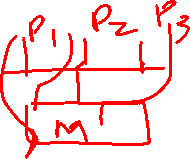 P1 P2 P3
M